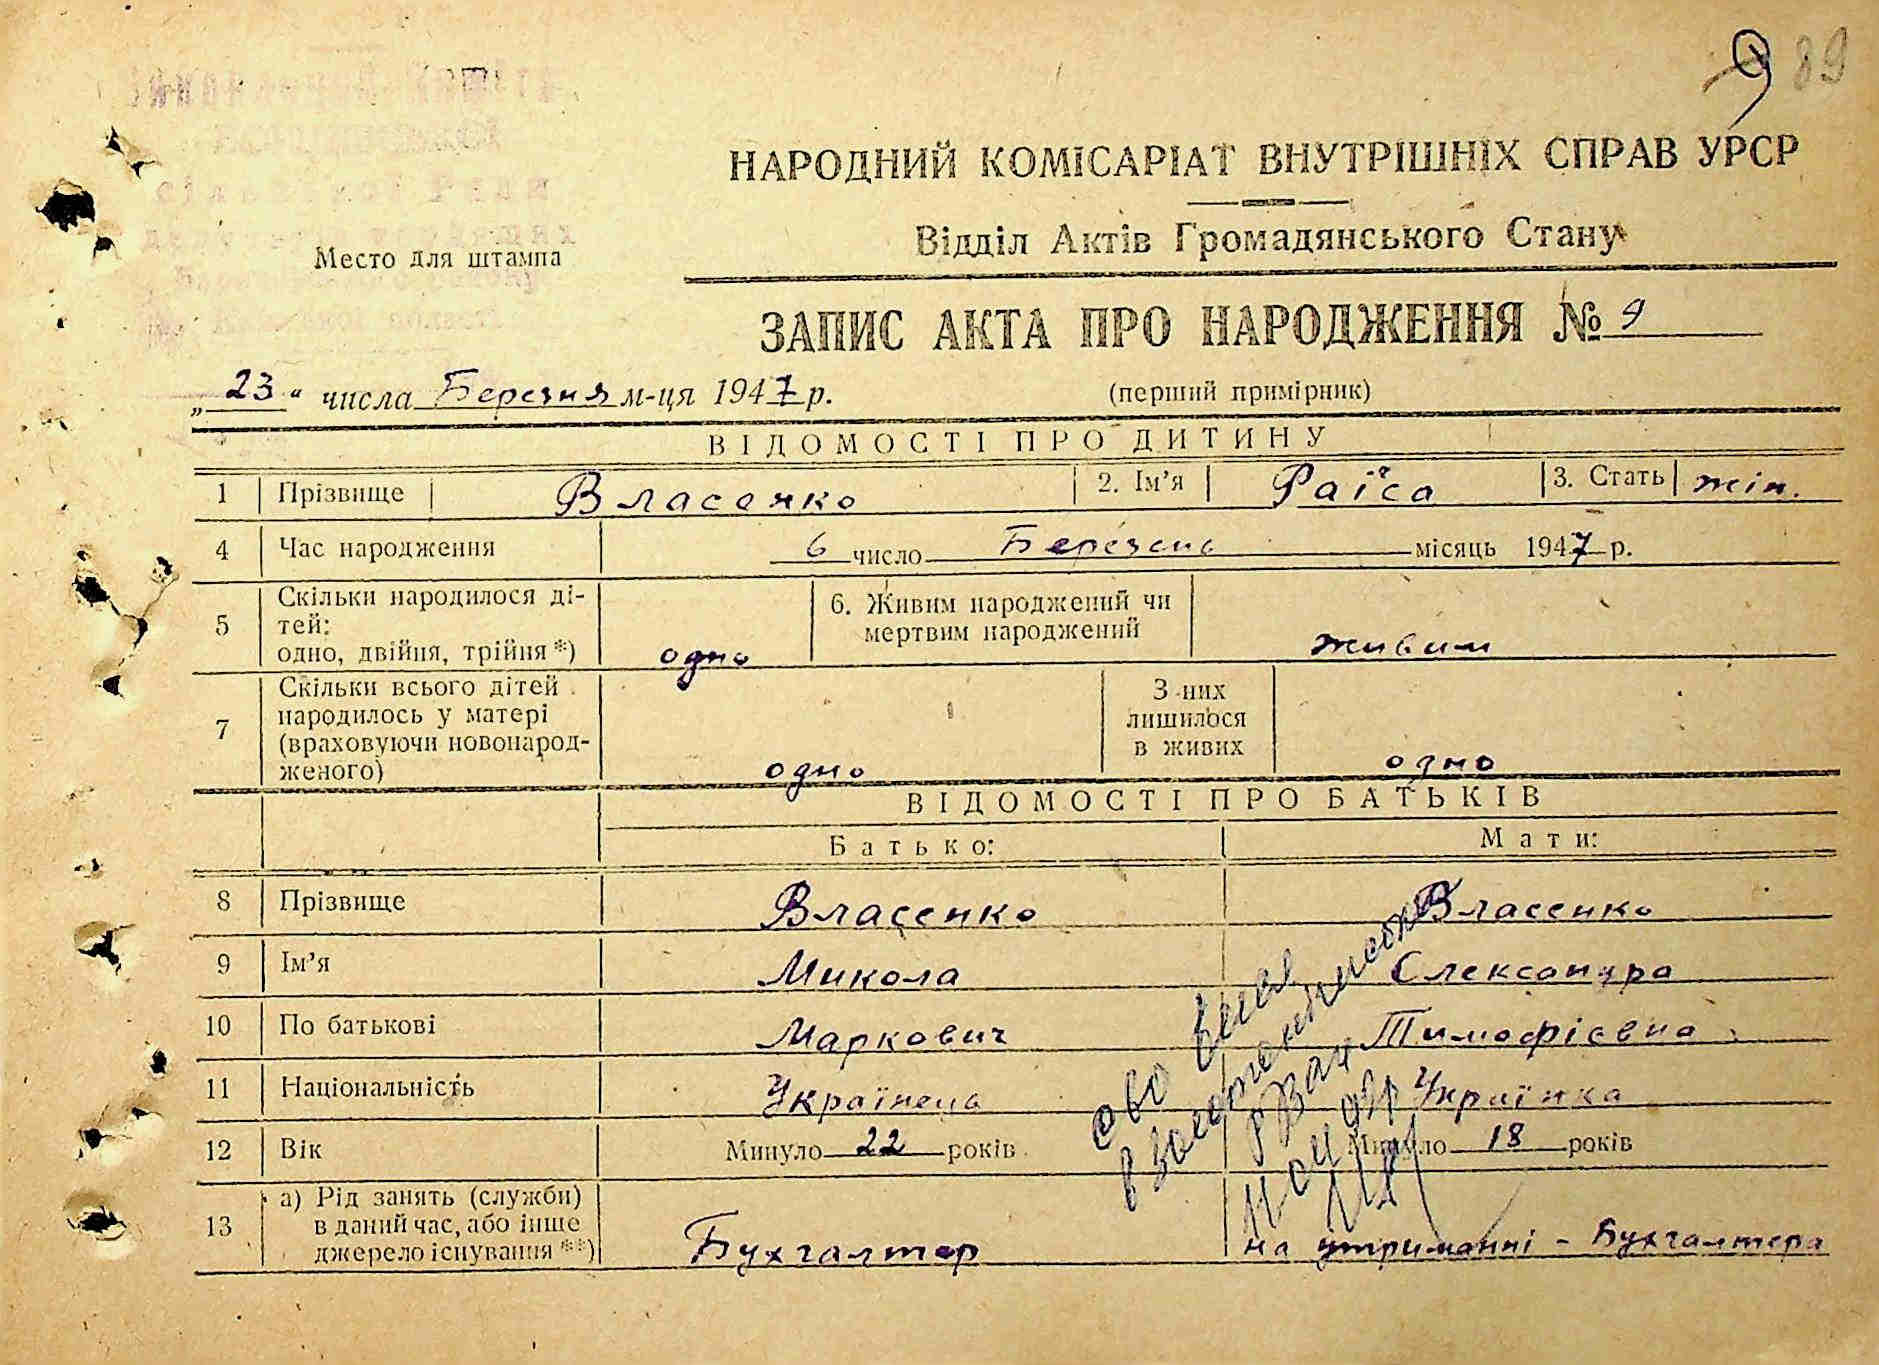 9 89
НАРОДНИЙ КОМІСАРІАТ ВНУТРІШНІХ СПРАВ УРСР
Відділ Актів Громадянського Стану
Место для штампа
ЗАПИС АКТА ПРО НАРОДЖЕННЯ № 9
„23“ числа Березня м-ця 1947 р. (перший примірник)
ВІДОМОСТІ ПРО ДИТИНУ
1 Прізвище Власенко 2. Ім’я Раїса 3. Стать жін.
4 Час народження 6 число Березень місяць 1947 р.
5 Скільки народилося ді-
тей:
одно, двійня, трійня *) одно
6. Живим народжений чи
мертвим народжений живим
7 Скільки всього дітей
народилось у матері
(враховуючи новонарод-
женого) одно
З них
лишилося
в живих одно
ВІДОМОСТІ ПРО БАТЬКІВ
Батько: Мати:
8 Прізвище Власенко Власенко
9 Ім’я Микола Олександра
10 По батькові Маркович Тимофієвна
11 Національність Українець Українка
12 Вік Минуло 22 років Минуло 18 років
13 а) Рід занять (служби)
в даний час, або інше
джерело існування **) Бухгалтер на утриманні - Бухгалтера